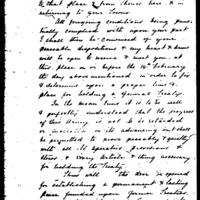 to that place from thence here & in
returning to your Towns.
All foregoing conditions being punc-
tually complied with upon your part
I shall then be convinced of your
peaceable dispositions & my heart & arms
will be open to receive & meet you at
this place on or before the 14th February
the day above mentioned in order to fix
& determine upon a proper time &
place for holding a General Treaty.
In the mean time it is to be well
& perfectly understood that the progress
of this Army is not to be retarded
or in its advancing but shall
be permitted to move peaceably & quietly
with all its apparatus, provisions &
stores, & every article & thing necessary
for holding the Treaty.
Thus will the door be opened
for establishing a permanent & lasting
Peace founded upon former Treaties